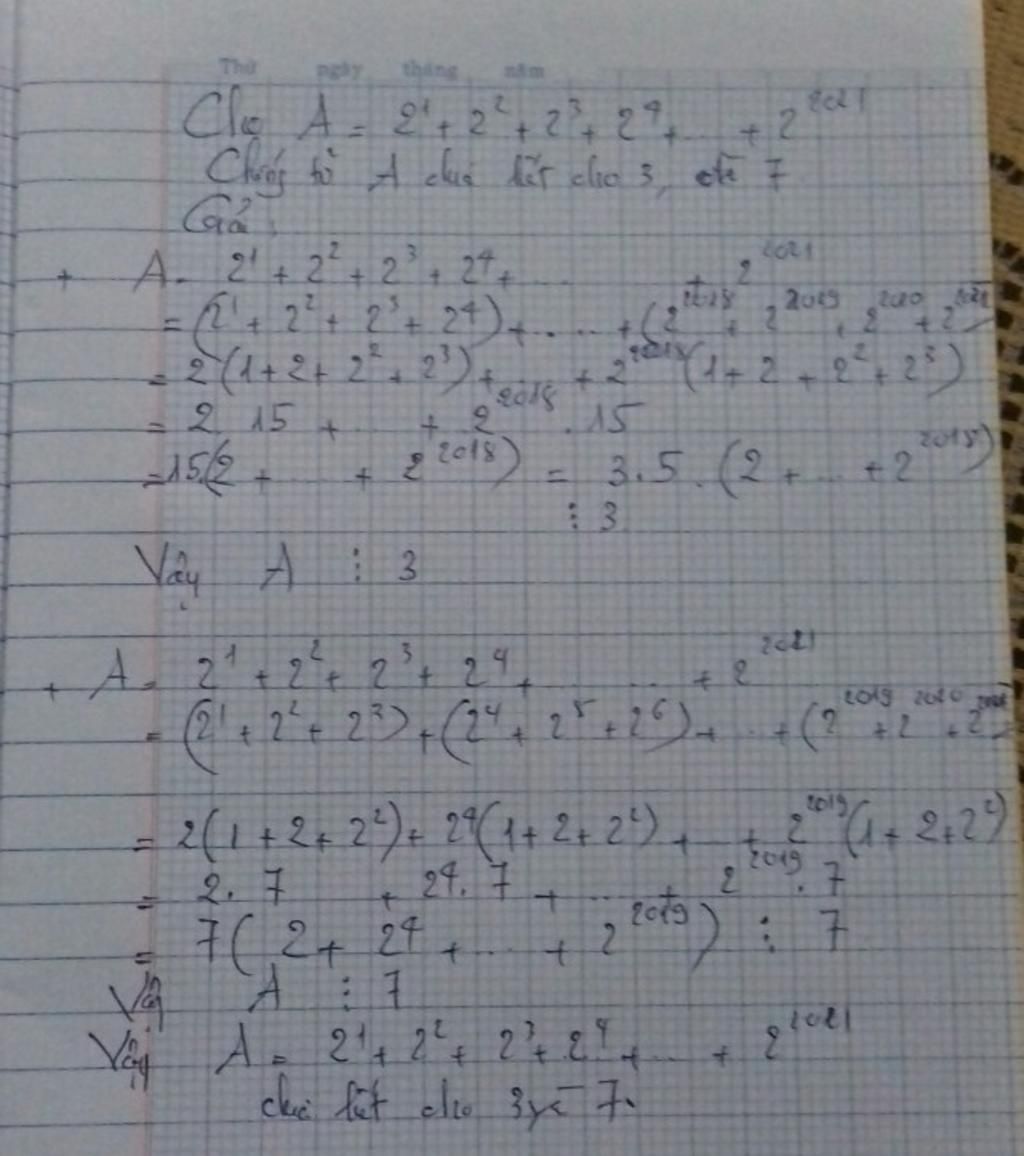 Thứ ngày tháng năm
Cho A = 2¹ + 2² + 2³ + 2⁴ + ... + 2²⁰²¹
Chứng tỏ A chia hết cho 3, 7
Giải
+ A = 2¹ + 2² + 2³ + 2⁴ + ... + 2²⁰²¹
= (2¹ + 2² + 2³ + 2⁴) + ... + (2²⁰¹⁸ + 2²⁰¹⁹ + 2²⁰²⁰ + 2²⁰²¹)
= 2(1 + 2 + 2² + 2³) + ... + 2²⁰¹⁸(1 + 2 + 2² + 2³)
= 2 . 15 + ... + 2²⁰¹⁸ . 15
= 15(2 + ... + 2²⁰¹⁸) = 3.5.(2 + ... + 2²⁰¹⁸)
⋮ 3
Vậy A ⋮ 3
+ A = 2¹ + 2² + 2³ + 2⁴ + ... + 2²⁰²¹
= (2¹ + 2² + 2³) + (2⁴ + 2⁵ + 2⁶) + ... + (2²⁰¹⁹ + 2²⁰²⁰ + 2²⁰²¹)
= 2(1 + 2 + 2²) + 2⁴(1 + 2 + 2²) + ... + 2²⁰¹⁹(1 + 2 + 2²)
= 2 . 7 + 2⁴ . 7 + ... + 2²⁰¹⁹ . 7
= 7(2 + 2⁴ + ... + 2²⁰¹⁹) ⋮ 7
Vậy A ⋮ 7
Vậy A = 2¹ + 2² + 2³ + 2⁴ + ... + 2²⁰²¹
chia hết cho 3 và 7.